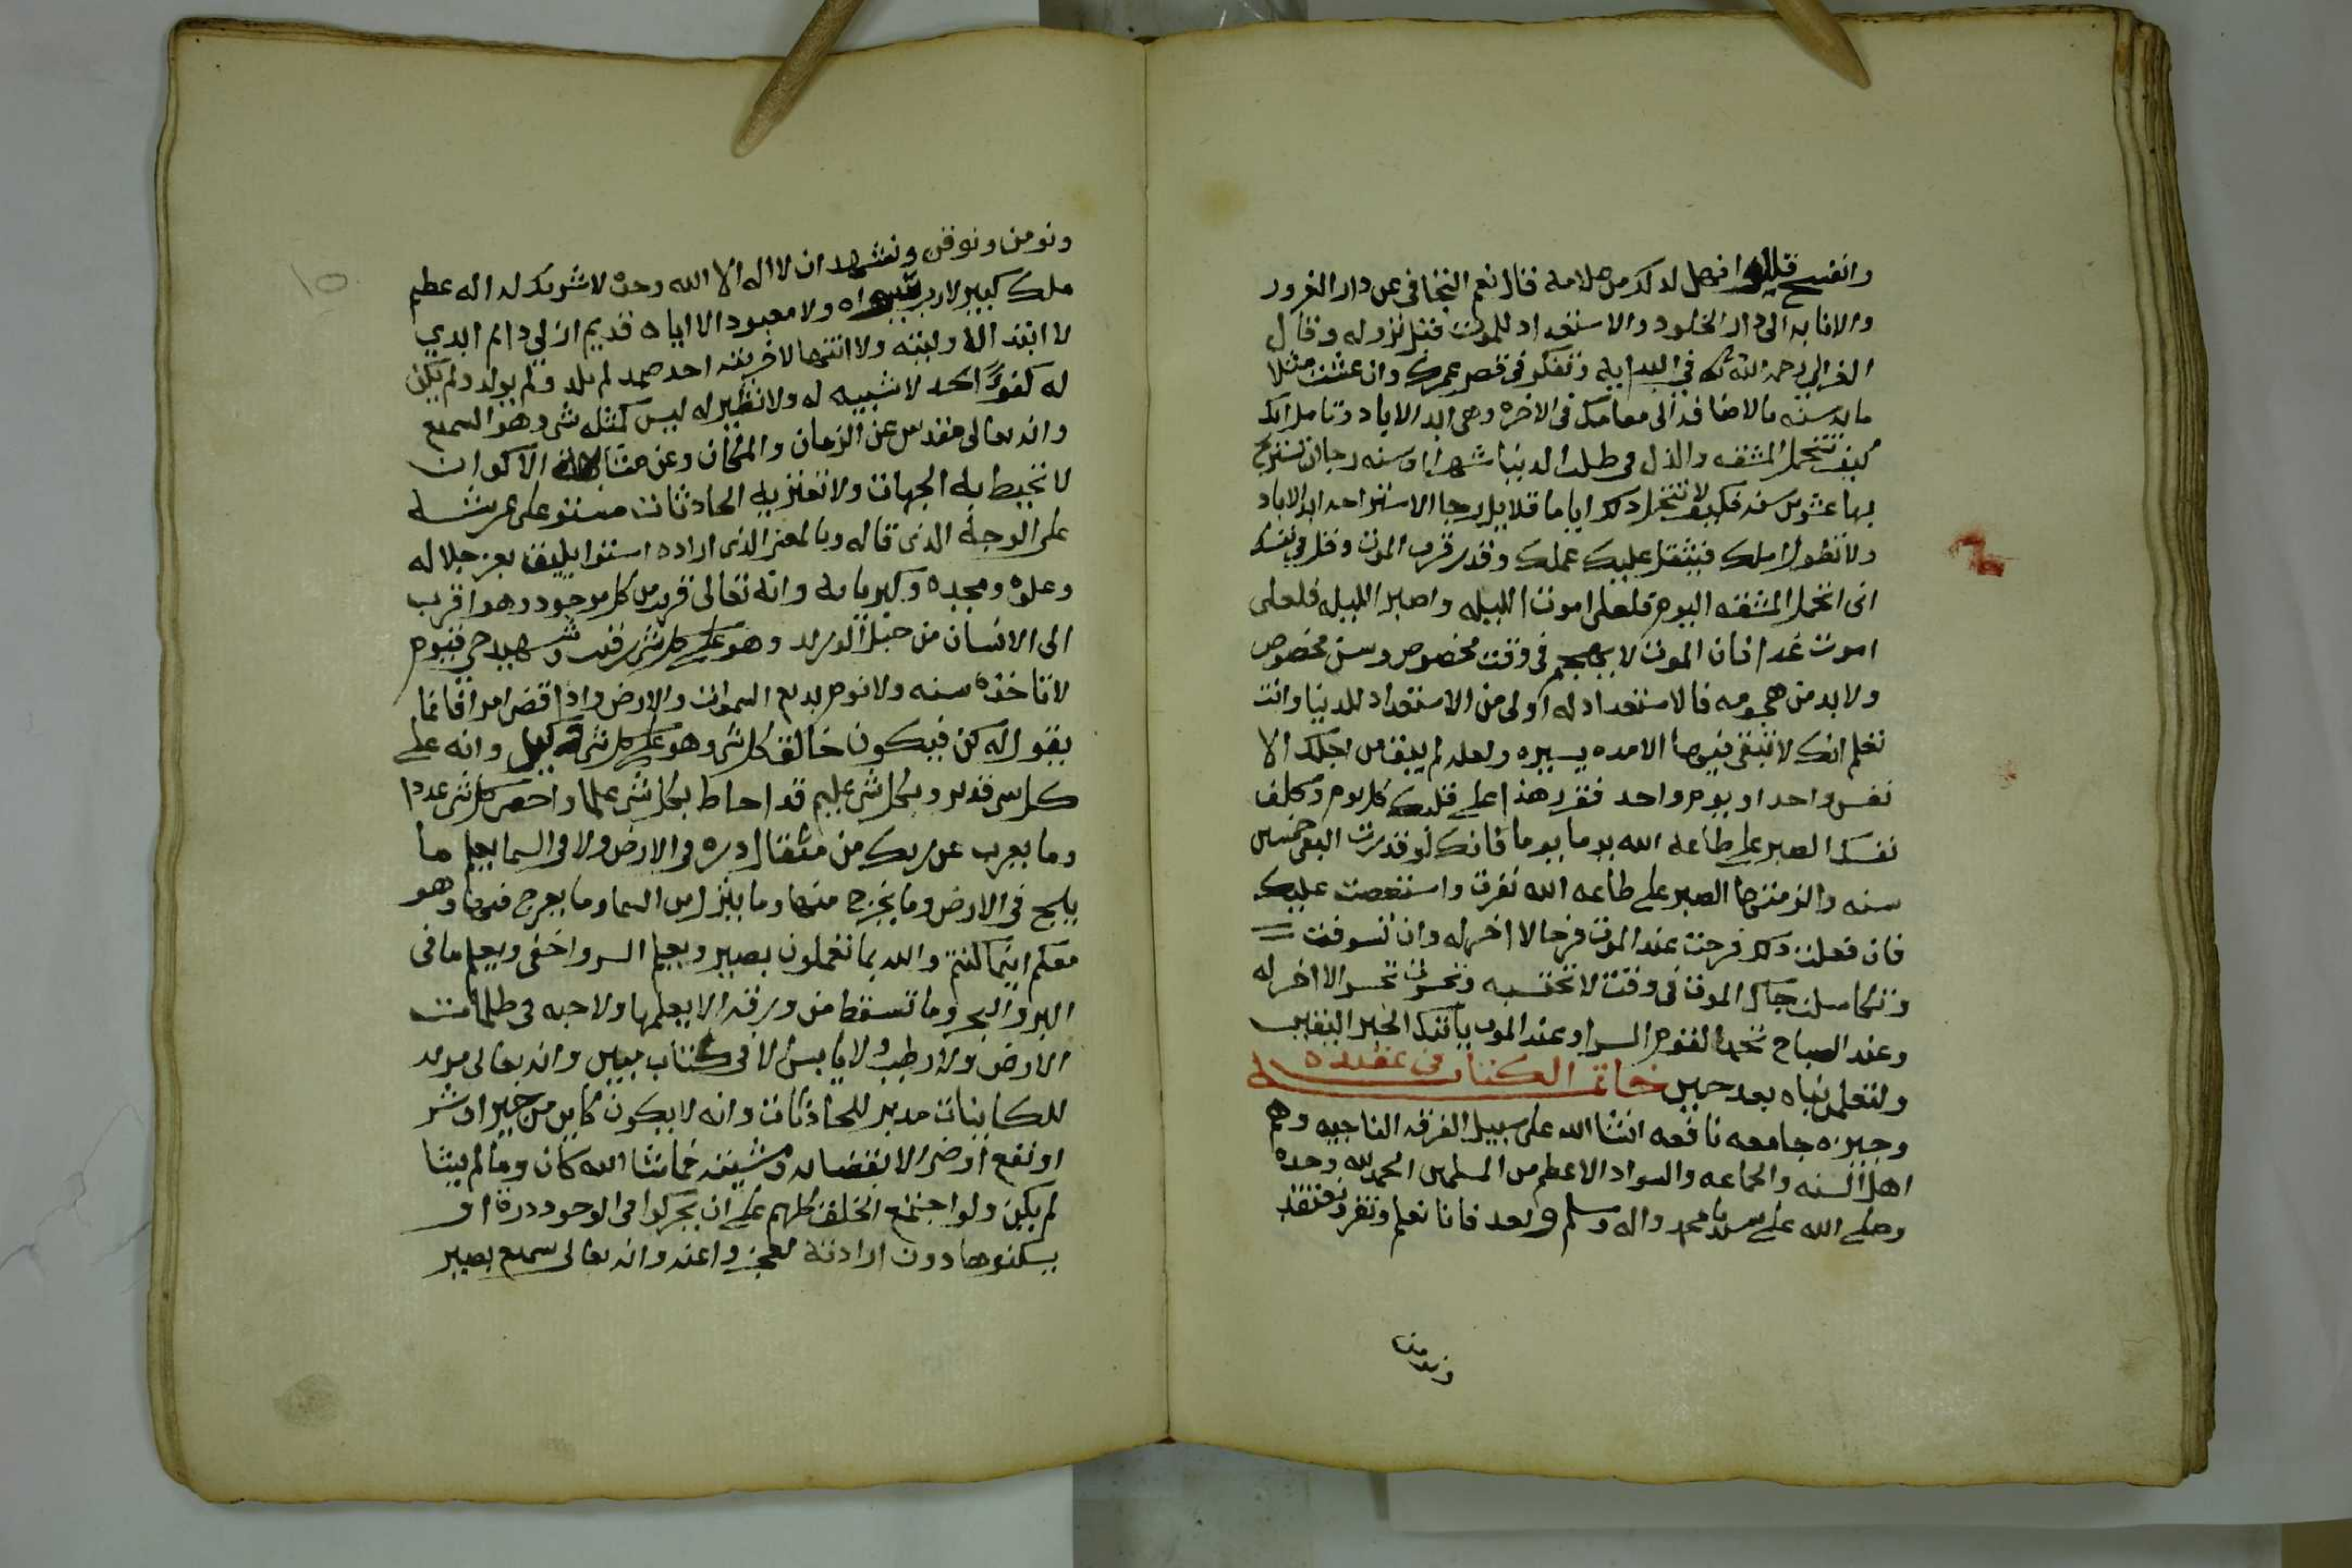 وانفسح قيل فهل لذلك من علامة قال نعم التجافي عن دار الغرور
والانابه الى دار الخلود والاستعداد للموت قبل نزوله وقال
الغزالي رحمه الله في البدايه وتفكر في قصر عمرك وان عشت مثلا
مايه سنه بالاضافه الى مقامك في الاخره وهي ابد الاباد وتامل انك
كيف تتحمل المشقه والذل في طلب الدنيا شهرا او سنه رجا ان تستريح
بها عشرين سنه فكيف لا تتحمل ذلك اياما قلايل رجا الاستراحه ابد الاباد
ولا تطول املك فيثقل عليك عملك وقدر قرب الموت وقل في نفسك
اني اتحمل المشقه اليوم فلعلي اموت الليله واصبر الليله فلعلي
اموت غدا فان الموت لا يهجم في وقت مخصوص وسن مخصوص
ولا بد من هجومه فالاستعداد له اولى من الاستعداد للدنيا وانت
تعلم انك لا تبقى فيها الا مده يسيره ولعله لم يبق من اجلك الا
نفس واحد او يوم واحد فقرر هذا على قلبك كل يوم وكلف
نفسك الصبر على طاعة الله يوما يوما فانك لو قدرت البقى خمسين
سنه والزمتها الصبر على طاعه الله نفرت واستعصت عليك
فان فعلت ذلك فرحت عند الموت فرحا لا اخر له وان تسوفت
وتكاسلت جاك الموت في وقت لا تحتسبه وتحسرت تحسرا لا اخر له
وعند الصباح تحمد القوم السرا وعند الموت ياتيك الخبر اليقين
ولتعلمن نباه بعد حين خاتمة الكتاب في عقيده
وجيزه جامعه نافعه انشا الله على سبيل الفرقه الناجيه وهم
اهل السنه والجماعه والسواد الاعظم من المسلمين الحمد لله وحده
وصلى الله على سيدنا محمد واله وسلم وبعد فانا نعلم ونقر ونعتقد
ونومن
ونومن ونوقن ونشهد ان لا اله الا الله وحده لا شريك له اله عظيم
ملك كبير لا رب سواه ولا معبود الا اياه قديم ازلي دايم ابدي
لا ابتدا لاوليته ولا انتها لاخريته احد صمد لم يلد ولم يولد ولم يكن
له كفوًا احد لا شبيه له ولا نظير له ليس كمثله شي وهو السميع
وانه تعالى مقدس عن الزمان والمكان وعن مشابهة الاكوان
لا تحيط به الجهات ولا تعتريه الحادثات مستو على عرشه
على الوجه الذي قاله وبالمعنى الذي اراده استوا يليق بعز جلاله
وعلوه ومجده وكبريايه وانه تعالى قريب من كل موجود وهو اقرب
الى الانسان من حبل الوريد وهو على كل شي رقيب وشهيد حي قيوم
لا تاخذه سنه ولا نوم بديع السموات والارض واذا قضى امرا فانما
يقول له كن فيكون خالق كل شي وهو على كل شي وكيل وانه على
كل شي قدير وبكل شي عليم قد احاط بكل شي علما واحصى كل شي عددا
وما يعزب عن ربك من مثقال ذره في الارض ولا في السما يعلم ما
يلج في الارض وما يخرج منها وما ينزل من السما وما يعرج فيها وهو
معكم اينما كنتم والله بما تعملون بصير ويعلم السر واخفى ويعلم ما في
البر والبحر وما تسقط من ورقه الا يعلمها ولا حبه في ظلمات
الارض ولا رطب ولا يابس الا في كتاب مبين وانه تعالى مريد
للكاينات مدبر للحادثات وانه لا يكون كاين من خير او شر
او نفع او ضر الا بقضايه ومشيته فما شا الله كان وما لم يشا
لم يكن ولو اجتمع الخلق كلهم على ان يحركوا في الوجود ذرة او
يسكنوها دون ارادته لعجزوا عنه وانه تعالى سميع بصير